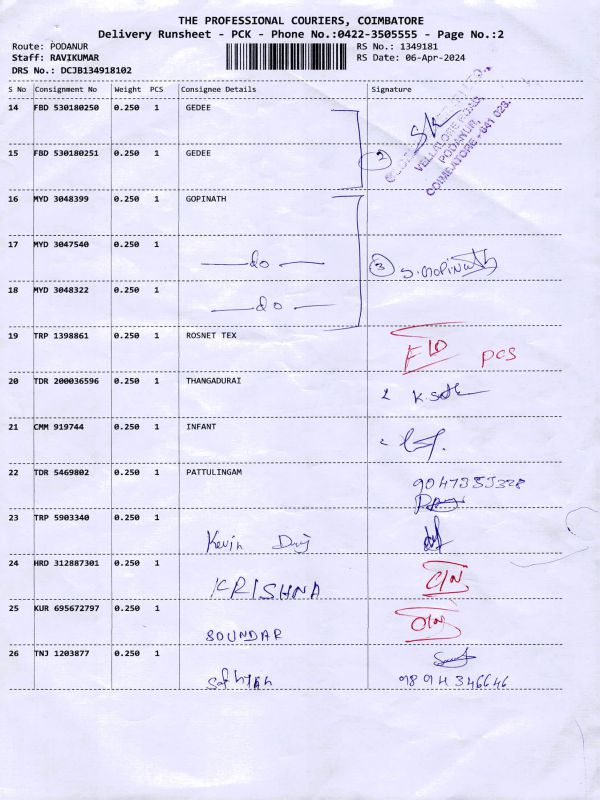 THE PROFESSIONAL COURIERS, COIMBATORE
Delivery Runsheet - PCK - Phone No.:0422-3505555 - Page No.:2
Route: PODANUR RS No.: 1349181
Staff: RAVIKUMAR RS Date: 06-Apr-2024
DRS No.: DCJB134918102
S No Consignment No Weight PCS Consignee Details Signature
14 FBD 530180250 0.250 1 GEDEE
VELLALORE ROAD,
PODANUR,
COIMBATORE - 641 023.
15 FBD 530180251 0.250 1 GEDEE 2
16 MYD 3048399 0.250 1 GOPINATH
17 MYD 3047540 0.250 1 — do — 3 S. GOPINATH
18 MYD 3048322 0.250 1 — do —
19 TRP 1398861 0.250 1 ROSNET TEX PCS
20 TDR 200036596 0.250 1 THANGADURAI
21 CMM 919744 0.250 1 INFANT
22 TDR 5469802 0.250 1 PATTULINGAM
23 TRP 5903340 0.250 1 Kevin
24 HRD 312887301 0.250 1 KRISHNA
25 KUR 695672797 0.250 1 SOUNDAR
26 TNJ 1203877 0.250 1 9894346646